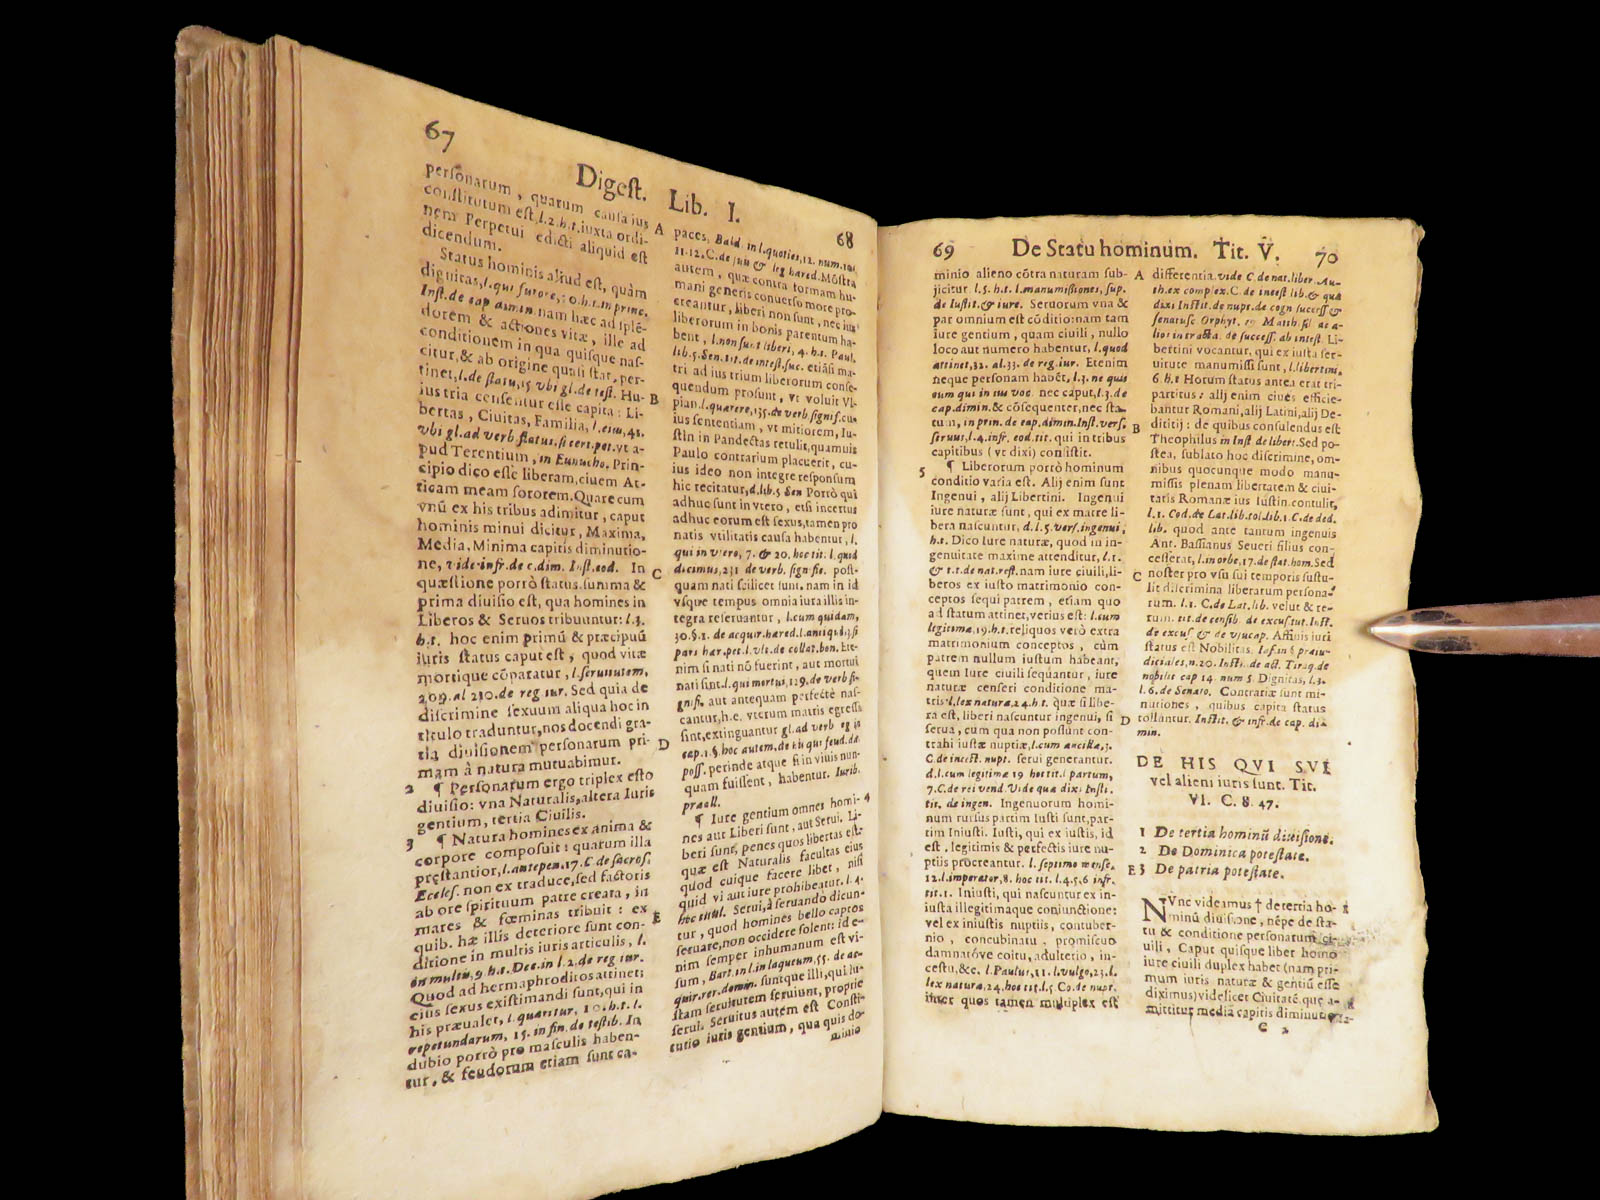 67
Digest. Lib. I.
68
personarum, quarum causa ius
constitutum est, l. 2. h. t. iuxta ordi-
nem Perpetui edicti aliquid est
dicendum.
Status hominis aliud est, quàm
dignitas,
Inst. de cap dimin. nam hæc ad splē-
dorem & actiones vitæ, ille ad
conditionem in qua quisque nas-
citur, & ab origine quasi stat, per-
tinet, l. de statu, 15 vbi gl. de test. Hu-
ius tria censentur esse capita: Li-
bertas, Ciuitas, Familia,
vbi gl. ad verb status. vt a-
pud Terentium, in Eunucho. Prin-
cipio dico esse liberam, ciuem At-
ticam meam sororem. Quare cum
vnū ex his tribus adimitur, caput
hominis minui dicitur, Maxima,
Media, Minima capitis diminutio-
ne, vide infr. de c. dim. Inst. eod. In
quæstione porrò status summa &
prima diuisio est, qua homines in
Liberos & Seruos tribuuntur: l. 3.
h. t. hoc enim primū & præcipuū
iuris status caput est, quod vitæ
mortique cōparatur, l. seruitutem,
209. al 230. de reg iur. Sed quia de
discrimine sexuum aliqua hoc in
titulo traduntur, nos docendi gra-
tia diuisionem personarum pri-
mam à natura mutuabimur.
2 ¶ Personarum ergo triplex esto
diuisio: vna Naturalis, altera Iuris
gentium, tertia Ciuilis.
3 ¶ Natura homines ex anima &
corpore composuit: quarum illa
præstantior, l. antepen. 17. C de sacros.
Eccles. non ex traduce, sed factoris
ab ore spirituum patre creata, in
mares & fœminas tribuit: ex
quib. hæ illis deteriore sunt con-
ditione in multis iuris articulis, l.
in multis, 9 h. t. Dec. in l. 2. de reg iur.
Quod ad hermaphroditos attinet;
eius sexus existimandi sunt, qui in
his præualet, l. quæritur, 10. h. t. l.
repetundarum, 15. in fin. de testib. In
dubio porrò pro masculis haben-
tur, & feudorum etiam sunt ca-
A
B
C
D
E
paces, Bald in l. quoties, 12. num.
11. 12. C. de suis & leg hæred. Mōstra
autem, quæ contra formam hu-
mani generis conuerso more pro-
creantur, liberi non sunt, nec ius
liberorum in bonis parentum ha-
bent, l. non sunt liberi, 4. h. t. Paul.
lib. 5. Sen. tit. de intest. suc. etiāsi ma-
tri ad ius trium liberorum conse-
quendum prosunt, vt voluit Vl-
pian. l. quærere, 135. de verb. signif. cu-
ius sententiam, vt mitiorem, Iu-
stin in Pandectas retulit, quamuis
Paulo contrarium placuerit, cu-
ius ideo non integre responsum
hic recitatur, d. lib. 5 Sen Porrò qui
adhuc sunt in vtero, etsi incertus
adhuc eorum est sexus, tamen pro
natis vtilitatis causa habentur, l.
qui in vtero, 7. & 20. hoc tit. l. quod
dicimus, 231 de verb. signific. post-
quam nati scilicet sunt. nam in id
vsque tempus omnia iura illis in-
tegra reseruantur, l. cum quidam,
30. §. 1. de acquir. hæred. l. antiqui, 3. si
pars hær. pet. l. vlt. de collat. bon. Ete-
nim si nati nō fuerint, aut mortui
nati sint. l. qui mortui, 129. de verb si-
gnif. aut antequam perfectè nas-
cantur, h. e. vterum matris egressi
sint, extinguantur
cap. 1. §. hoc autem, de his qui feud. da
poss. perinde atque si in viuis nun-
quam fuissent, habentur. Iurib.
præall.
¶ Iure gentium omnes homi- 4
nes aut Liberi sunt, aut Serui. Li-
beri sunt, penes quos libertas est:
quæ est Naturalis facultas eius
quod cuique facere libet, nisi
quid vi aut iure prohibeatur. l. 4.
hoc titul. Serui, à seruando dicun-
tur, quod homines bello captos
seruare, non occidere solent: id e-
nim semper inhumanum est vi-
sum, Bart. in l. in laqueum, 55. de ac-
quir. rer. domin. suntque illi, qui iu-
stam seruitutem seruiunt, proprie
serui. Seruitus autem est Consti-
tutio iuris gentium, qua quis do-
minio
69
De Statu hominum. Tit. V.
70
minio alieno cōtra naturam sub-
jicitur. l. 5. h. t. l. manumissiones, sup.
de Iustit. & iure. Seruorum vna &
par omnium est cōditio: nam tam
iure gentium, quam ciuili, nullo
loco aut numero habentur, l. quod
attinet, 32. al. 33. de reg. iur. Etenim
neque personam habēt, l. 3. ne quis
eum qui in ius voc. nec caput, l. 3. de
cap. dimin. & cōsequenter, nec sta-
tum, in prin. de cap. dimin. Inst. vers.
seruus, l. 4. infr. eod. tit. qui in tribus
capitibus (vt dixi) consistit.
5 ¶ Liberorum porrò hominum
conditio varia est. Alij enim sunt
Ingenui, alij Libertini. Ingenui
iure naturæ sunt, qui ex matre li-
bera nascuntur, d. l. 5. vers. ingenui,
h. t. Dico Iure naturæ, quod in in-
genuitate maxime attenditur, l. 1.
& t. t. de nat. rest. nam iure ciuili, li-
beros ex iusto matrimonio con-
ceptos sequi patrem, etiam quo
ad statum attinet, verius est: l. cum
legitimæ, 19. h. t. reliquos verò extra
matrimonium conceptos, cùm
patrem nullum iustum habeant,
quem iure ciuili sequantur, iure
naturæ censeri conditione ma-
tris. l. lex naturæ, 24. h. t. quæ si libe-
ra est, liberi nascuntur ingenui, si
serua, cum qua non possunt con-
trahi iustæ nuptiæ, l. cum ancillis, 3.
C. de incest. nupt. serui generantur.
d. l. cum legitimæ 19 hoc tit. l partum,
7. C. de rei vend. Vide qua dixi Insti.
tit. de ingen. Ingenuorum homi-
num rursus partim Iusti sunt, par-
tim Iniusti. Iusti, qui ex iustis, id
est, legitimis & perfectis iure nu-
ptiis procreantur. l. septimo mense,
12. l. imperator, 8. hoc tit. l. 4. 5. 6 infr.
tit. 1. Iniusti, qui nascuntur ex in-
iusta illegitimaque coniunctione:
vel ex iniustis nuptiis, contuber-
nio, concubinatu, promiscuo
damnatóve coitu, adulterio, in-
cestu, &c. l. Paulus, 11. l. vulgo, 23. l.
lex natura, 24. hoc tit. l. 5 Co. de nupt.
inter quos tamen multiplex est
A
B
C
D
E
differentia. vide C. de nat. liber. Au-
th. ex complex. C. de incest lib. & qua
dixi Instit. de nupt. de cogn success &
senatusc Orphyt.
Li-
bertini vocantur, qui ex iusta ser-
uitute manumissi sunt, l. libertini,
6. h. t Horum status antea erat tri-
partitus: alij enim ciues efficie-
bantur Romani, alij Latini, alij De-
dititij: de quibus consulendus est
Theophilus in Inst de libert. Sed po-
stea, sublato hoc discrimine, om-
nibus quocunque modo manu-
missis plenam libertatem & ciui-
tatis Romanæ ius Iustin contulit,
l. 1. Cod. de Lat. lib. tol. lib. 1. C. de ded.
lib. quod ante tantum ingenuis
Ant. Bassianus Seueri filius con-
cesserat, l. in orbe, 17. de stat. hom. Sed
noster pro vsu sui temporis sustu-
lit discrimina liberatum persona-
rum. l. 1. C. de Lat. lib. velut & re-
rum. tit. de censib. de excus tut. Inst.
de excus & de vsucap. Affinis iuri
status est Nobilitas. Iaf. in § præiu-
diciales, n. 20. Insti. de act. Tiraq. de
nobilit cap 14. num 5. Dignitas, l. 3.
l. 6. de Senato. Contrariæ sunt mi-
nutiones, quibus capita status
tollantur. Instit. & infr. de cap. di-
min.
DE HIS QVI SVI
vel alieni iuris sunt. Tit.
VI. C. 8. 47.
1 De tertia hominū diuisione.
2 De Dominica potestate.
3 De patria potestate.
NVnc videamus † de tertia ho- 1
minū diuisione, nēpe de sta-
tu & conditione personarum ci-
uili, Caput quisque liber homo
iure ciuili duplex habet (nam pri-
mum iuris naturæ & gentiū esse
diximus) videlicet Ciuitatē, quę a-
mittitur mediâ capitis diminutione
C 2